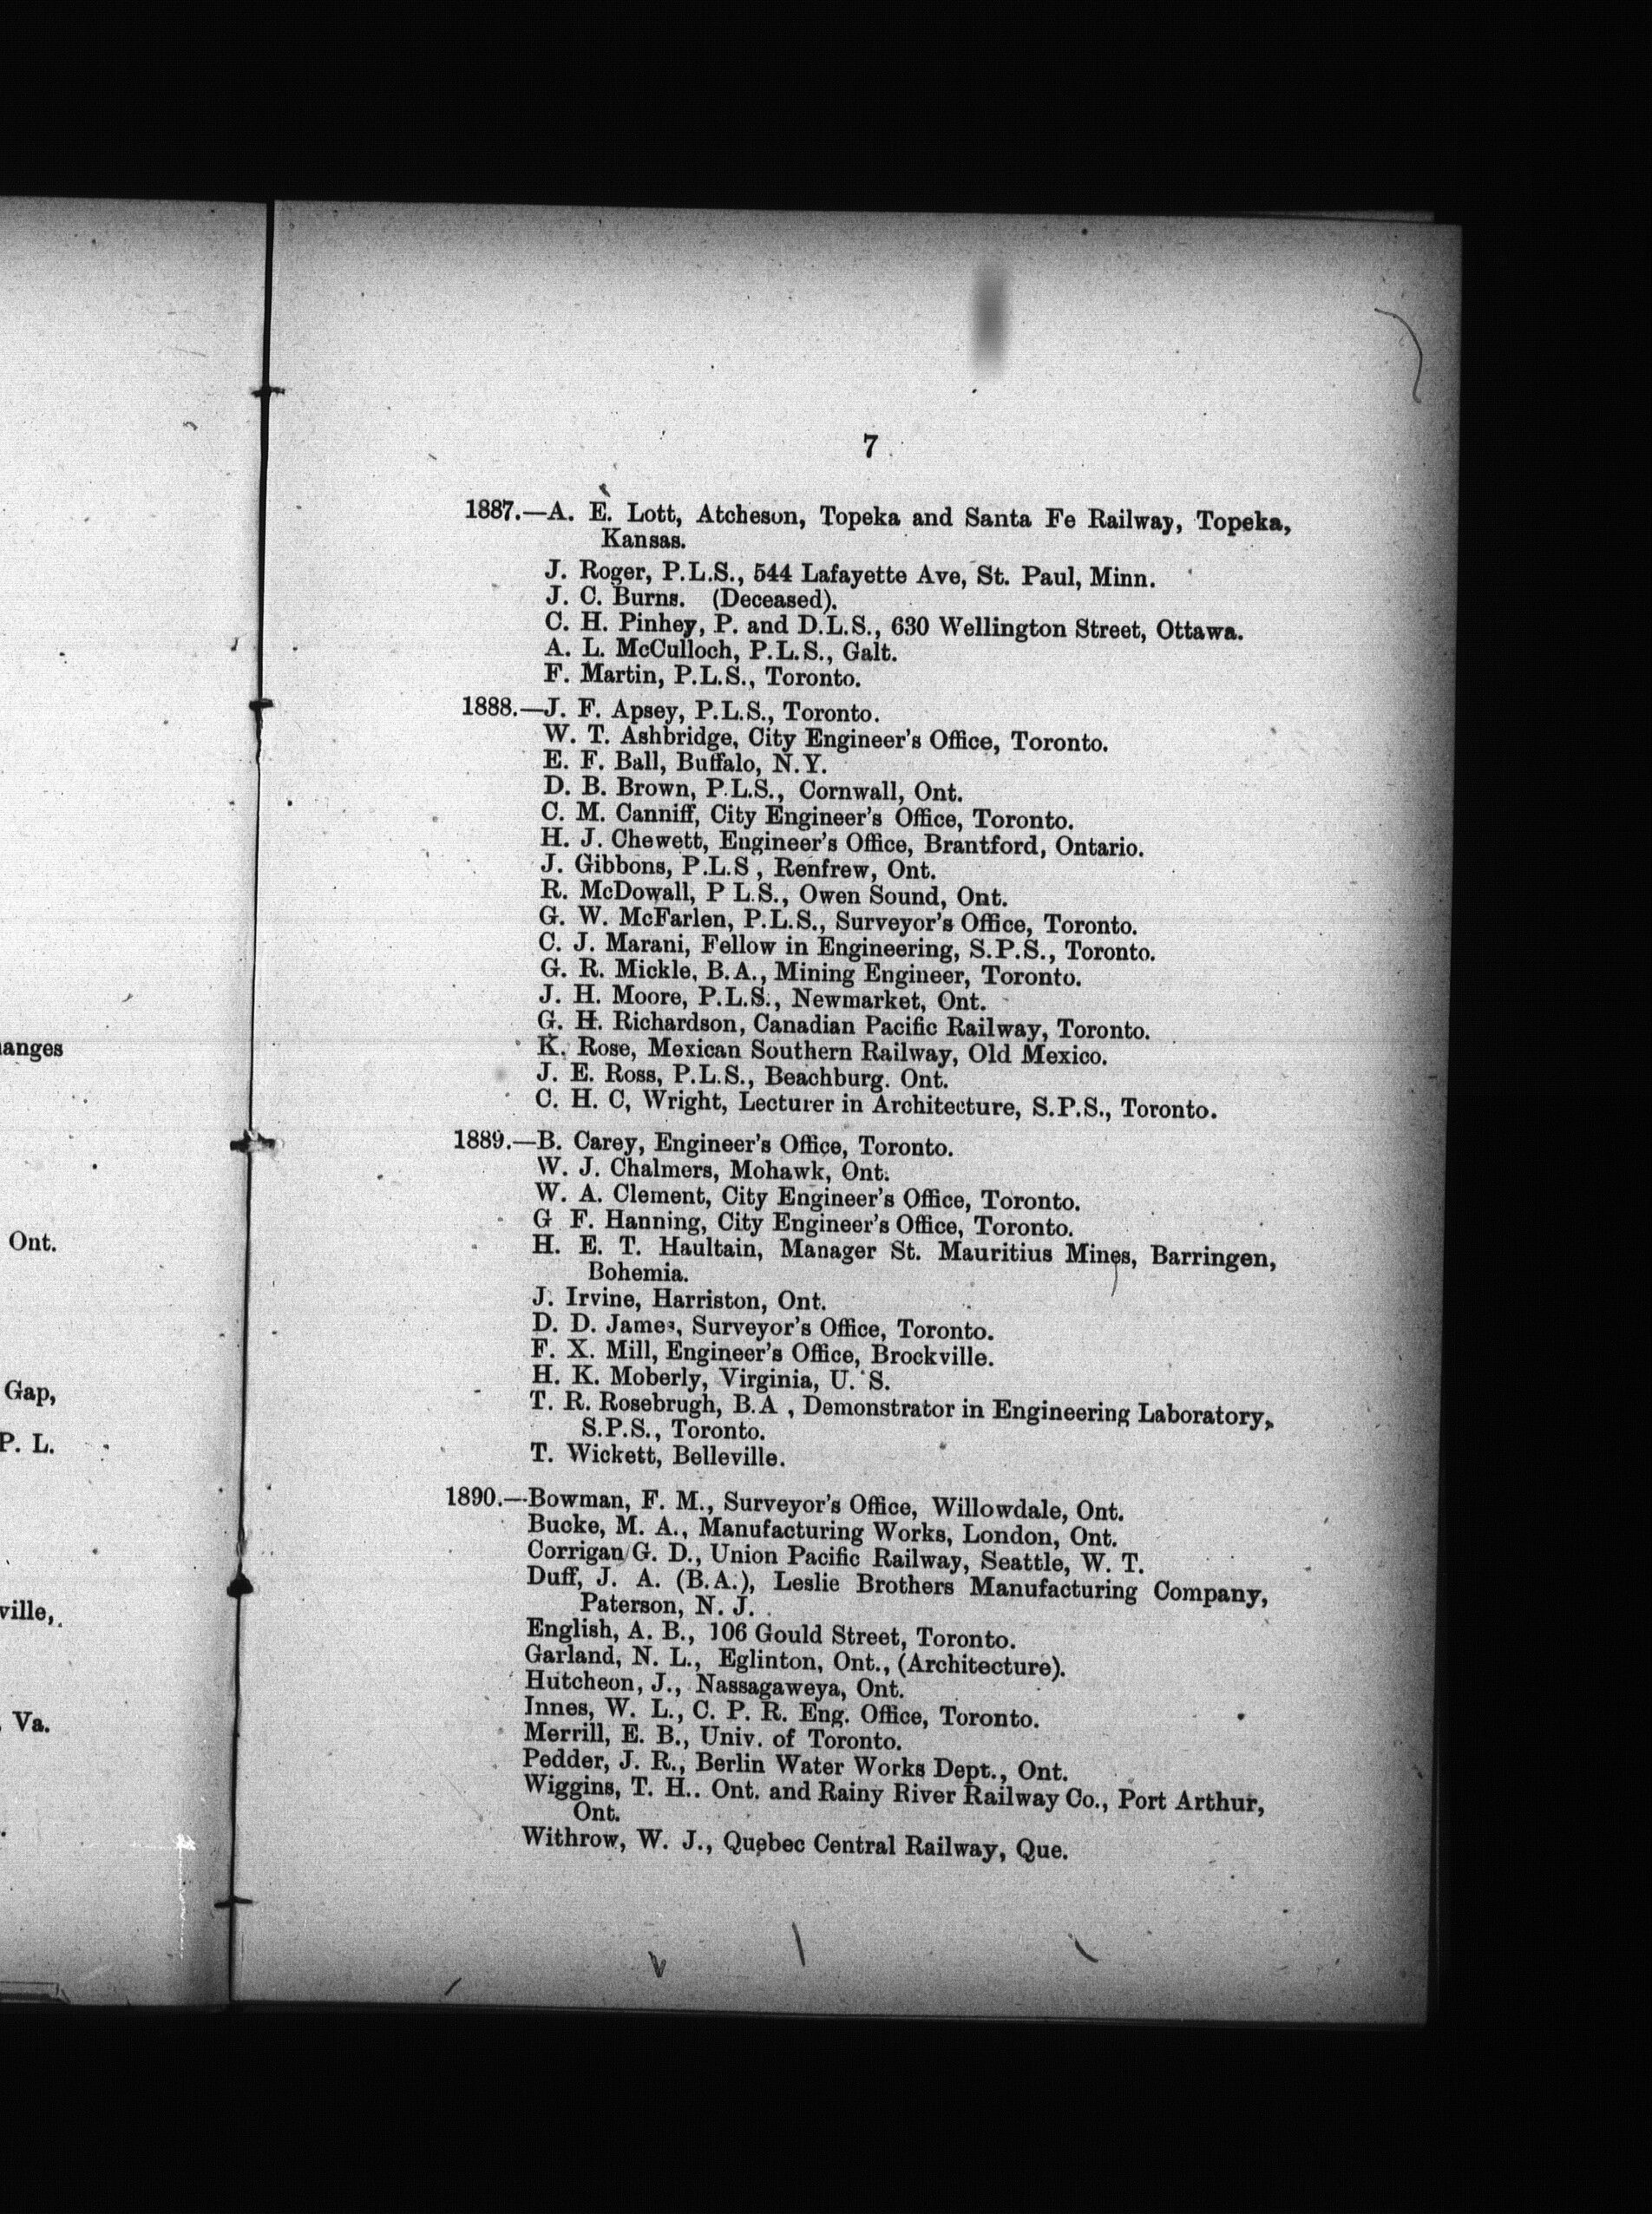 anges
Ont.
Gap,
P. L.
ville,
Va.
7
1887.—A. E. Lott, Atcheson, Topeka and Santa Fe Railway, Topeka,
Kansas.
J. Roger, P.L.S., 544 Lafayette Ave, St. Paul, Minn.
J. C. Burns. (Deceased).
C. H. Pinhey, P. and D.L.S., 630 Wellington Street, Ottawa.
A. L. McCulloch, P.L.S., Galt.
F. Martin, P.L.S., Toronto.
1888.—J. F. Apsey, P.L.S., Toronto.
W. T. Ashbridge, City Engineer's Office, Toronto.
E. F. Ball, Buffalo, N.Y.
D. B. Brown, P.L.S., Cornwall, Ont.
C. M. Canniff, City Engineer's Office, Toronto.
H. J. Chewett, Engineer's Office, Brantford, Ontario.
J. Gibbons, P.L.S , Renfrew, Ont.
R. McDowall, P L.S., Owen Sound, Ont.
G. W. McFarlen, P.L.S., Surveyor's Office, Toronto.
C. J. Marani, Fellow in Engineering, S.P.S., Toronto.
G. R. Mickle, B.A., Mining Engineer, Toronto.
J. H. Moore, P.L.S., Newmarket, Ont.
G. H. Richardson, Canadian Pacific Railway, Toronto.
K. Rose, Mexican Southern Railway, Old Mexico.
J. E. Ross, P.L.S., Beachburg. Ont.
C. H. C, Wright, Lecturer in Architecture, S.P.S., Toronto.
1889.—B. Carey, Engineer's Office, Toronto.
W. J. Chalmers, Mohawk, Ont.
W. A. Clement, City Engineer's Office, Toronto.
G F. Hanning, City Engineer's Office, Toronto.
H. E. T. Haultain, Manager St. Mauritius Mines, Barringen,
Bohemia.
J. Irvine, Harriston, Ont.
D. D. James, Surveyor's Office, Toronto.
F. X. Mill, Engineer's Office, Brockville.
H. K. Moberly, Virginia, U. S.
T. R. Rosebrugh, B.A , Demonstrator in Engineering Laboratory,
S.P.S., Toronto.
T. Wickett, Belleville.
1890.—Bowman, F. M., Surveyor's Office, Willowdale, Ont.
Bucke, M. A., Manufacturing Works, London, Ont.
Corrigan G. D., Union Pacific Railway, Seattle, W. T.
Duff, J. A. (B.A.), Leslie Brothers Manufacturing Company,
Paterson, N. J.
English, A. B., 106 Gould Street, Toronto.
Garland, N. L., Eglinton, Ont., (Architecture).
Hutcheon, J., Nassagaweya, Ont.
Innes, W. L., C. P. R. Eng. Office, Toronto.
Merrill, E. B., Univ. of Toronto.
Pedder, J. R., Berlin Water Works Dept., Ont.
Wiggins, T. H.. Ont. and Rainy River Railway Co., Port Arthur,
Ont.
Withrow, W. J., Quebec Central Railway, Que.